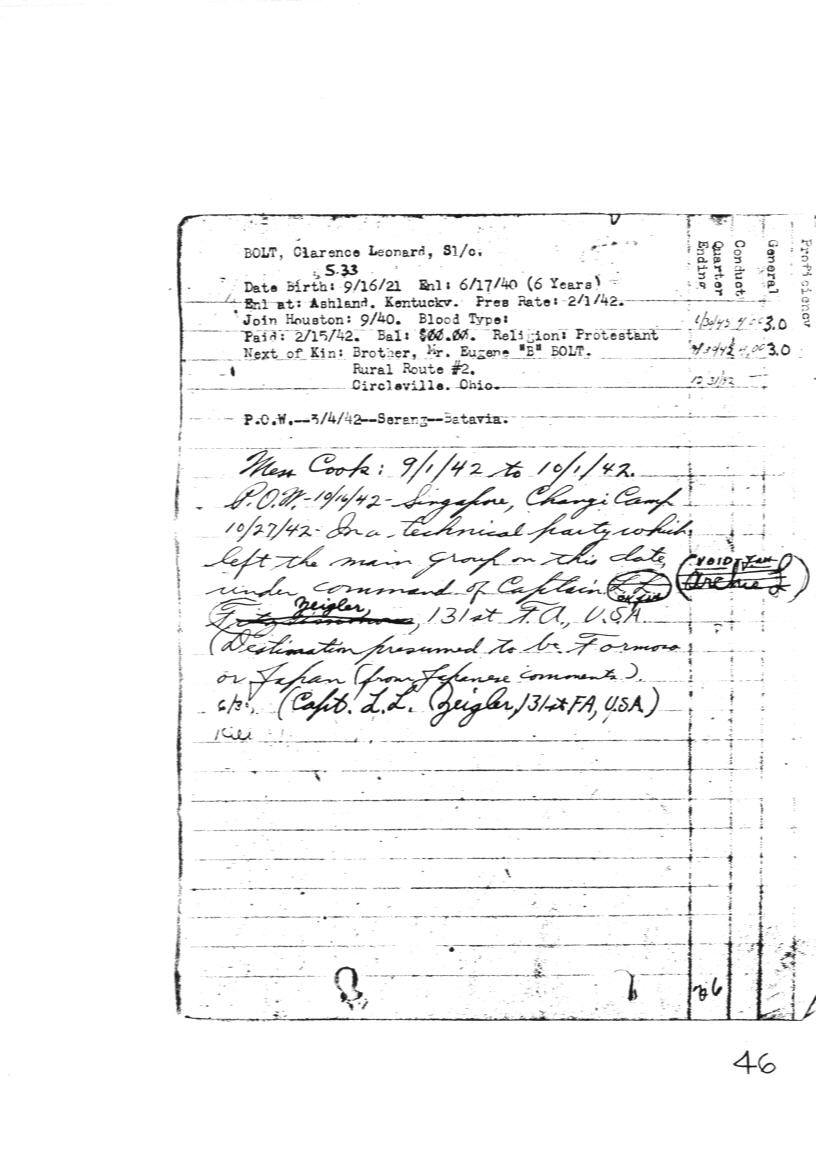 BOLT, Clarence Leonard, S1/c.
S-33
Date Birth: 9/16/21 Enl: 6/17/40 (6 Years)
Enl at: Ashland. Kentucky. Pres Rate: 2/1/42.
Join Houston: 9/40. Blood Type:
Paid: 2/15/42. Bal: $00.00. Religion: Protestant
Next of Kin: Brother, Mr. Eugene "B" BOLT.
Rural Route #2.
Circleville. Ohio.
P.O.W.--3/4/42--Serang--Batavia.
Quarter Ending
Conduct
General
Proficiency
3.0
3.0
12/31/42
Mess Cook: 9/1/42 to 10/1/42.
P.O.W.-10/16/42-Singapore, Changi Camp
10/27/42-In a technical party which
left the main group on this date,
under command of Captain L L
VOID
Archie L
Zeigler,
Fritz, 131st F.A., U.S.A.
(Destination presumed to be Formosa
or Japan (from Japanese comments).
(Capt. L.L. Zeigler, 131st FA, U.S.A.)
26
46